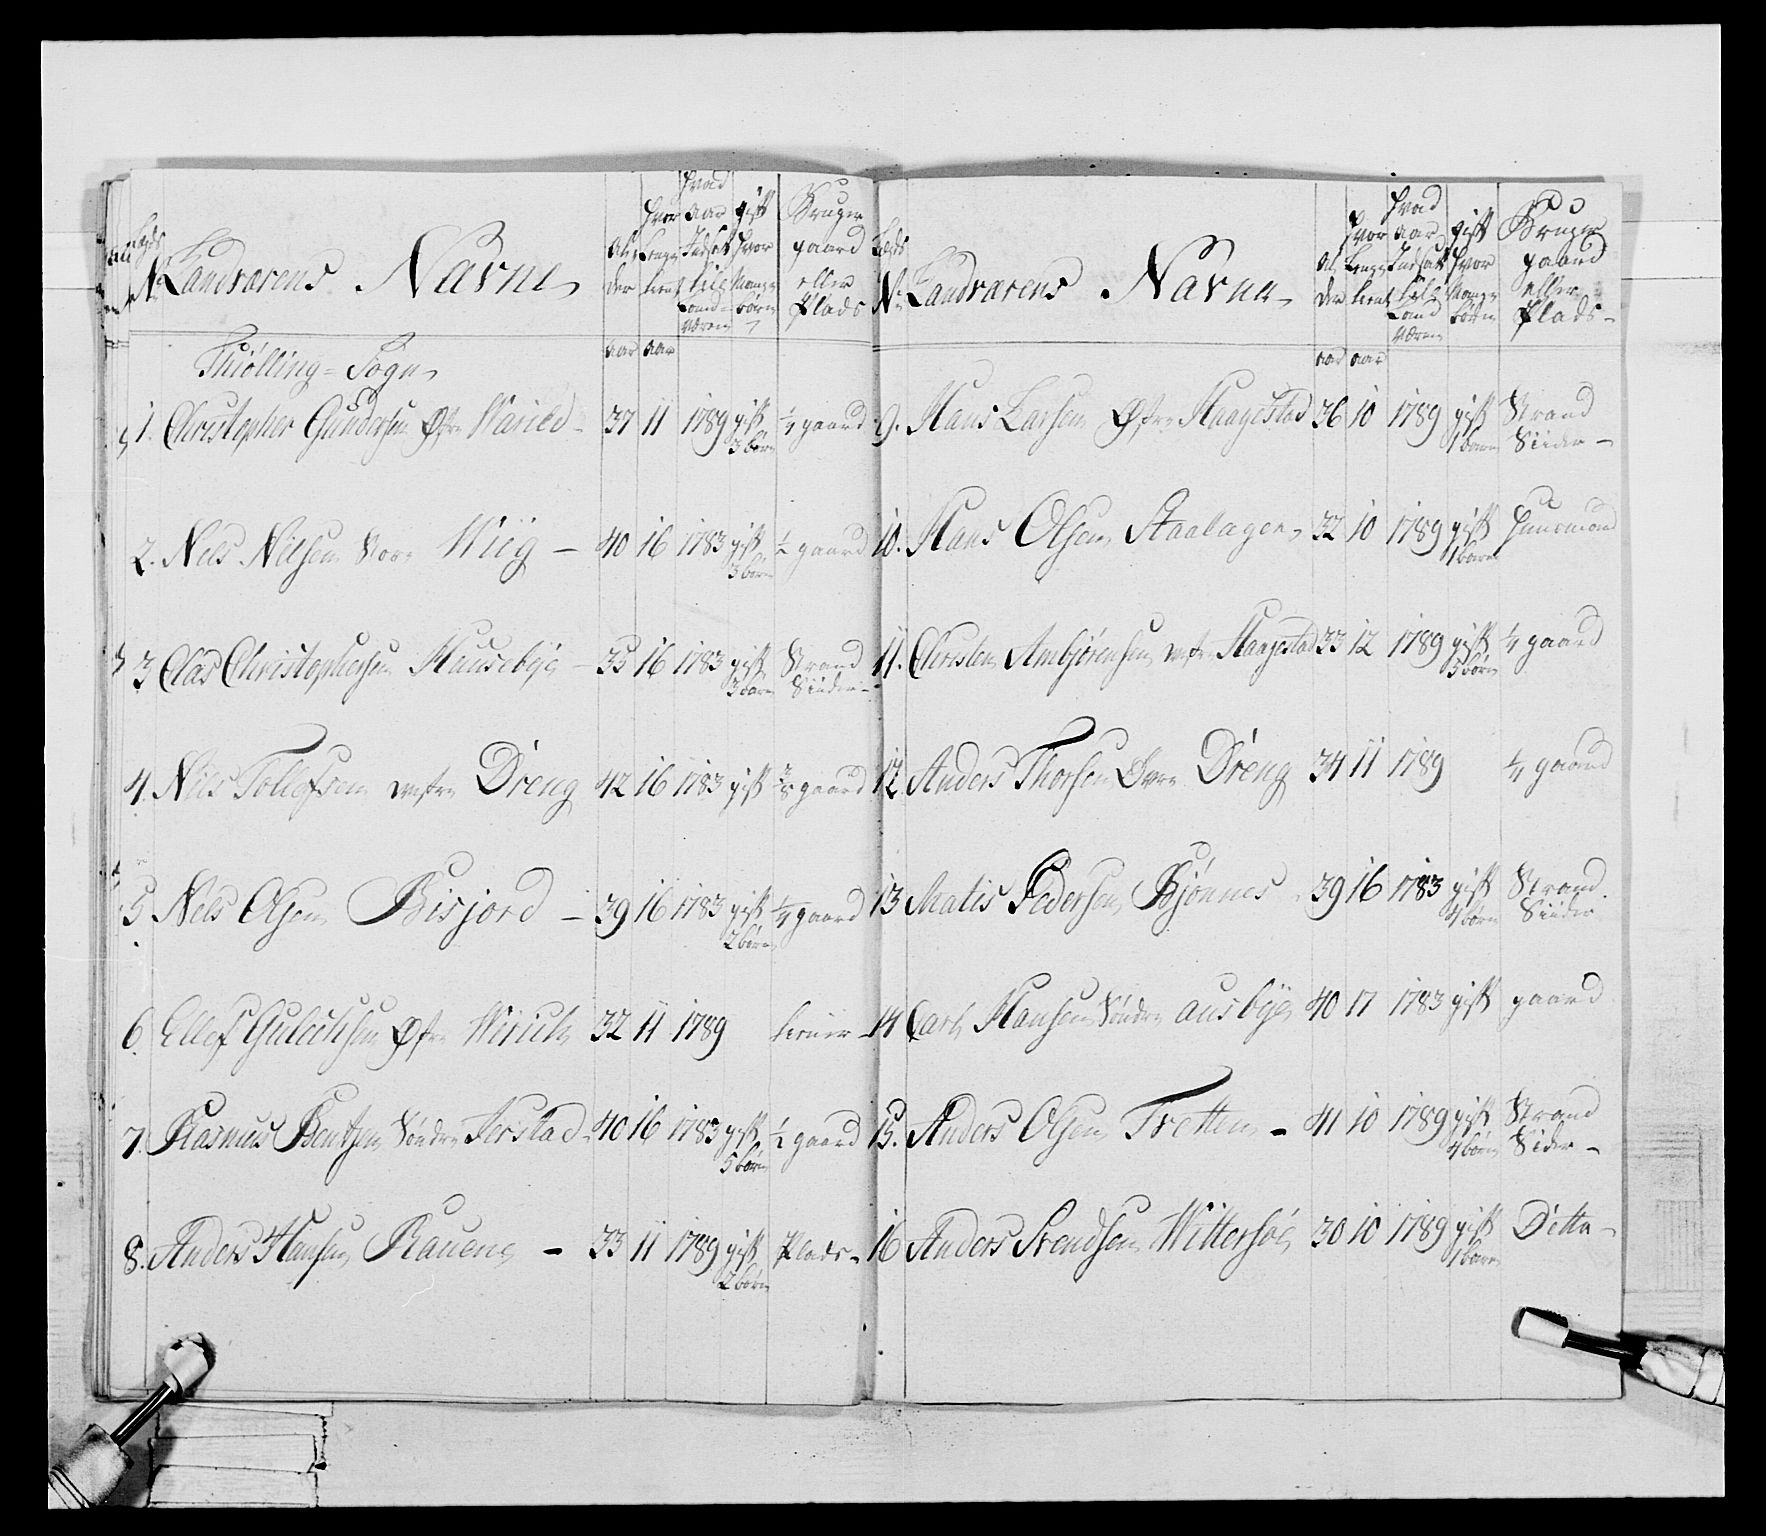 Lægds No
Landværens Navne
Al-
der
hvor
Længe
tient
hvad
aar
Indsat
til
Land-
væren
gift
hvor
Mange
børn
Bruger
gaard
eller
Plads
aar aar
Thiølling = Sogn
1. Christopher Gundersen Øfre 37 11 1789 gift 3 børn 1/4 gaard
2. Nels Nilsen Store Wiig – 40 16 1783 gift 3 børn 1/2 gaard
3 Clas Christophersen Huusebye – 35 16 1783 gift 3 børn Strand Siider –
4. Niels Tollefsen vestre Dreng 42 16 1783 gift 3/8 gaard
5 Nels Olsen Bisjord – 39 16 1783 gift 2 børn 1/4 gaard
6. Ellef Øfre 32 11 1789
7. Rasmus Bentsen Søndre Jerstad – 40 16 1783 gift 5 børn 1/2 gaard
8. Anders Hansen Rauene – 33 11 1789 gift 2 børn Plads –
Lægds
No
Landværens Navne
Al-
der
hvor
Længe
tient
hvad
aar
Indsatt
til
Land
væren
gift
hvor
Mange
børn
Bruger
gaard
eller
Plads –
aar aar
9. Hans Larsen Øfre Haagestad 36 10 1789 gift 1 barn Strand Siider –
10. Hans Olsen Staalagen 32 10 1789 gift 1 barn Huusmand
11. Christen Ambjørensen vestre Haagestad 33 12 1789 gift 5 børn 1/4 gaard
12. Anders Thorsen Øvre Dreng 34 11 1789 1/4 gaard
13 Matis Pedersen Bjønnes – 39 16 1783 gift 4 børn Strand Siider
14 Carl Hansen Søndre ausbye 40 17 1783 gift gaard
15. Anders Olsen Tretten – 41 10 1789 gift 4 børn Strand Sider –
16 Anders Svendsen Wittersøe 30 10 1789 gift 1 barn Ditto –